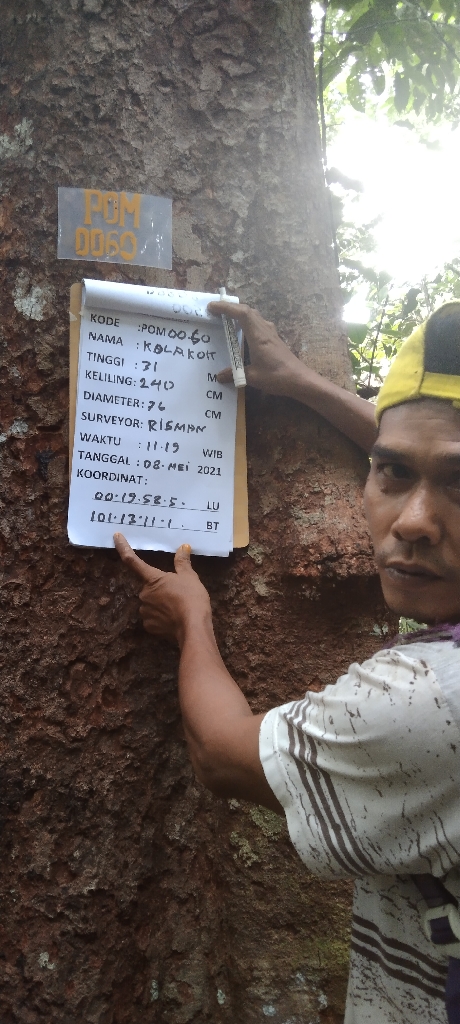 POM
0060
KODE : POM0060
NAMA : KALAKOK
TINGGI : 31 M
KELILING: 240 CM
DIAMETER: 76 CM
SURVEYOR: RISMAN
WAKTU : 11.19 WIB
TANGGAL : 08. MEI 2021
KOORDINAT:
00.19.58.5. LU
101.12.11.1. BT